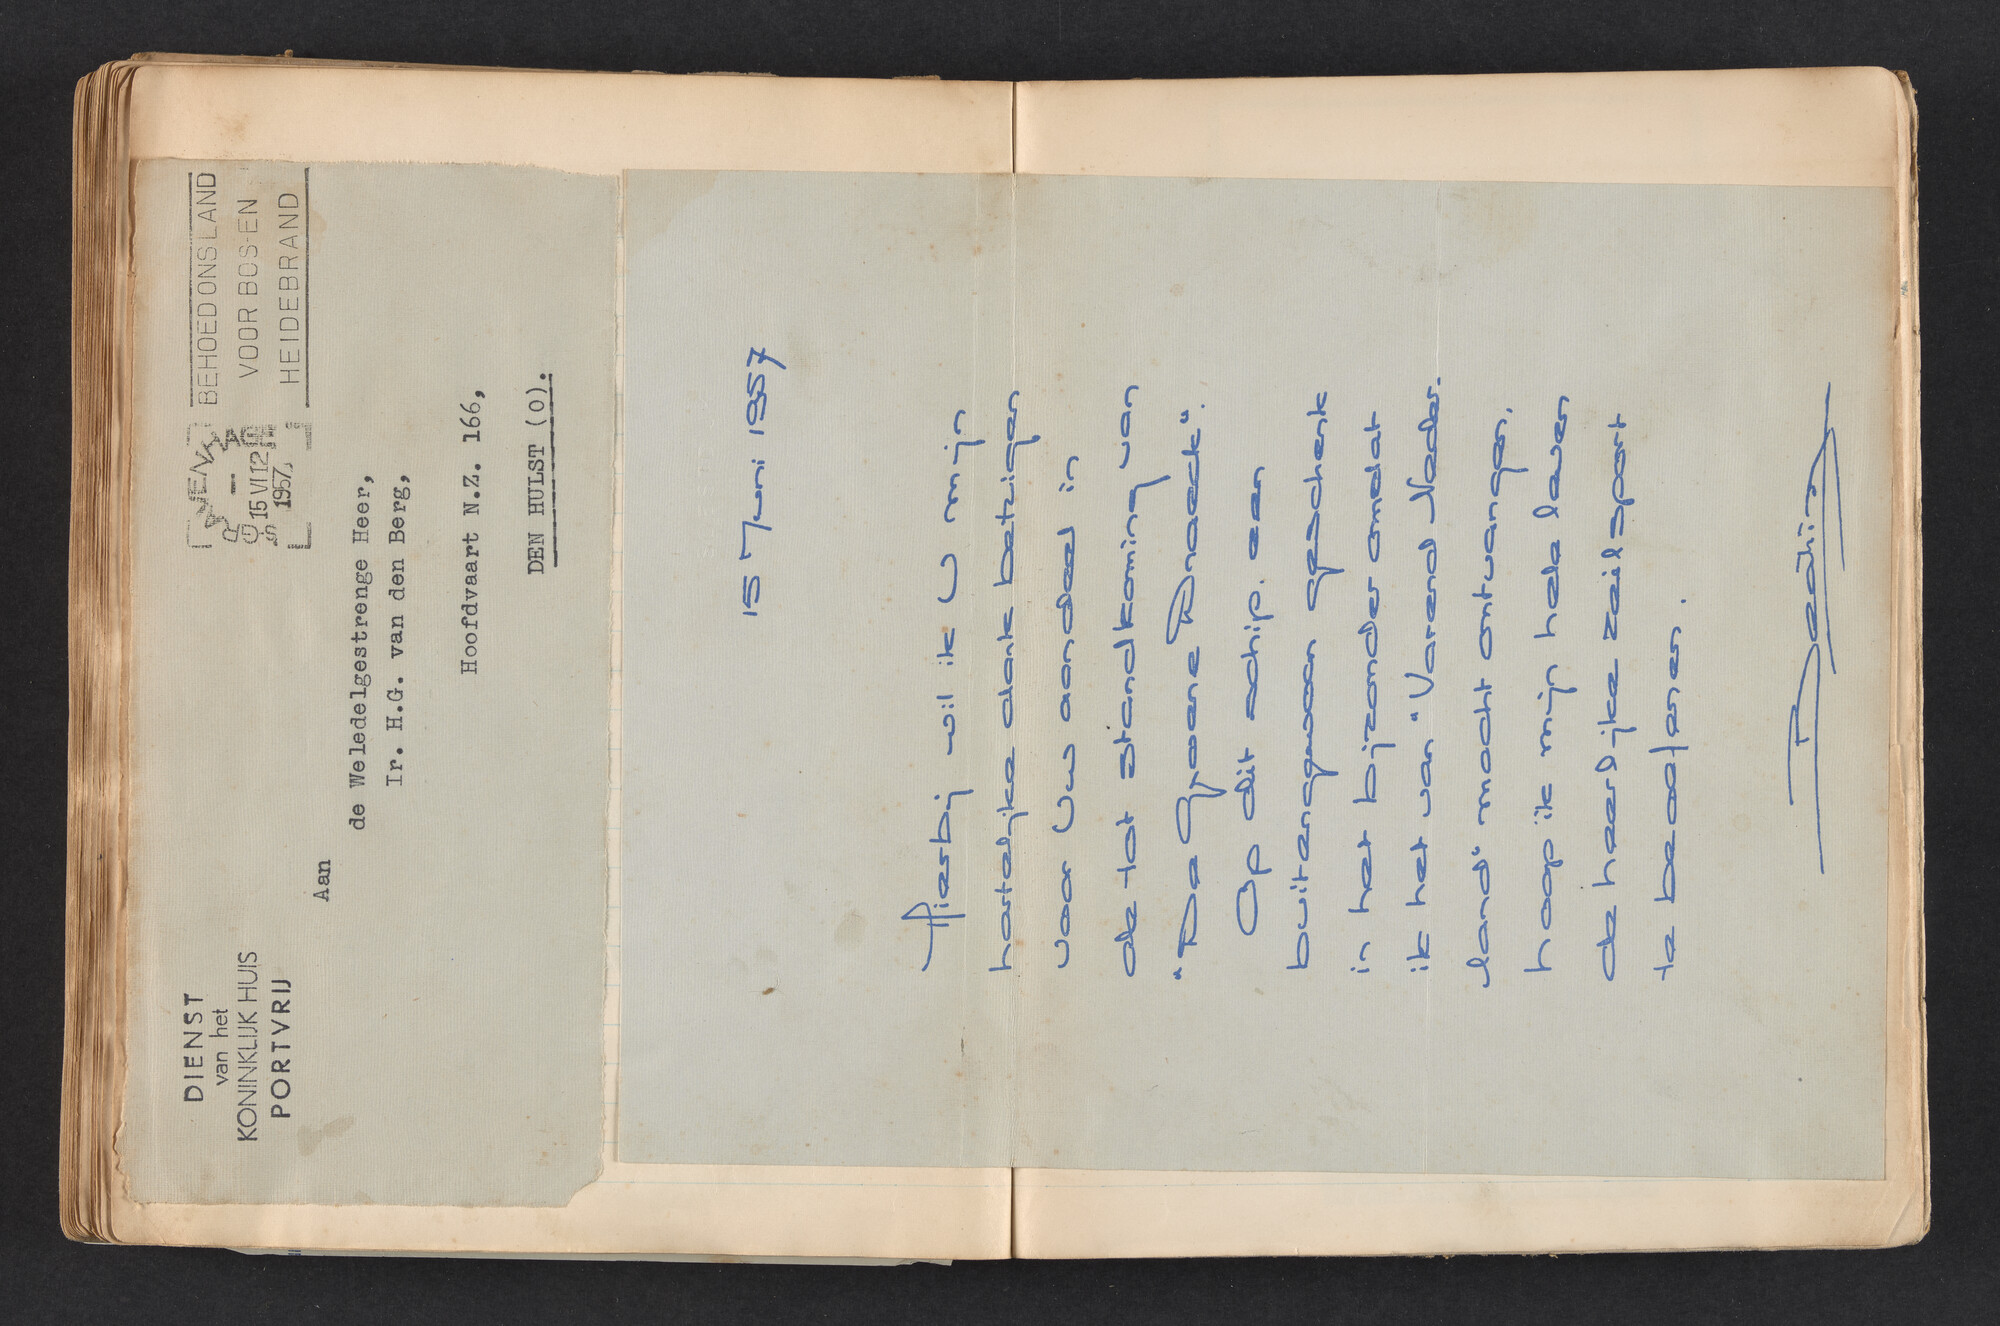 DIENST
van het
KONINKLIJK HUIS
PORTVRIJ
15 VI 12
1957
BEHOED ONS LAND
VOOR BOS-EN
HEIDEBRAND
Aan
de Weledelgestrenge Heer,
Ir. H.G. van den Berg,
Hoofdvaart N.Z. 166,
DEN HULST (O).
15 Juni 1957
Hierbij wil ik U mijn
hartelijke dank betuigen
voor Uw aandeel in
de tot standkoming van
"De Groene Draeck".
Op dit schip, een
buitengewoon geschenk
in het bijzonder omdat
ik het van "Varend Neder-
land" mocht ontvangen,
hoop ik mijn hele leven
de heerlijke zeilsport
te beoefenen.
Beatrix